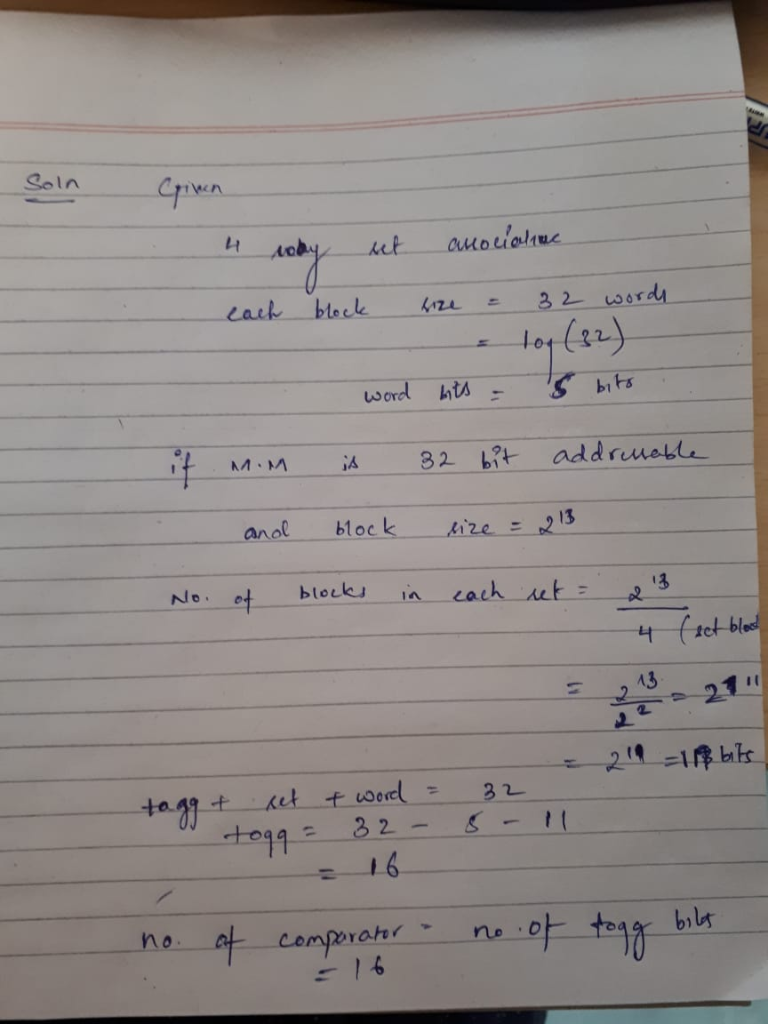 Soln Given
4 way set associative
each block size = 32 words
= log (32)
word bits = 5 bits
if M.M is 32 bit addressable
and block size = 2^13
No. of blocks in each set = 2^13
4 (set
= 2^13 / 2^2 = 2^11
= 2^11 = 11 bits
tagg + set + word = 32
tagg = 32 - 5 - 11
= 16
no. of comparator = no. of tagg bits
= 16